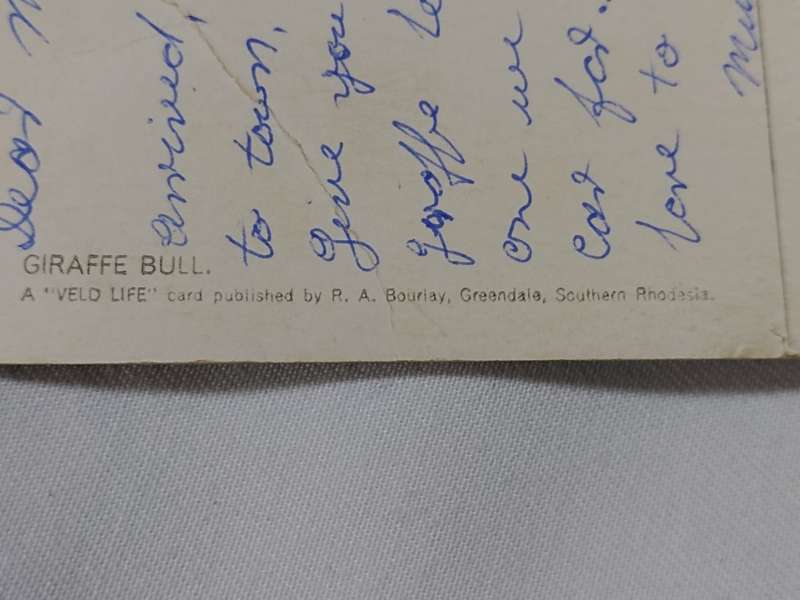 Dear
arrived,
to town,
Give you
giraffe
one we
car for.
love to
GIRAFFE BULL.
A "VELD LIFE" card published by R. A. Bourlay, Greendale, Southern Rhodesia.